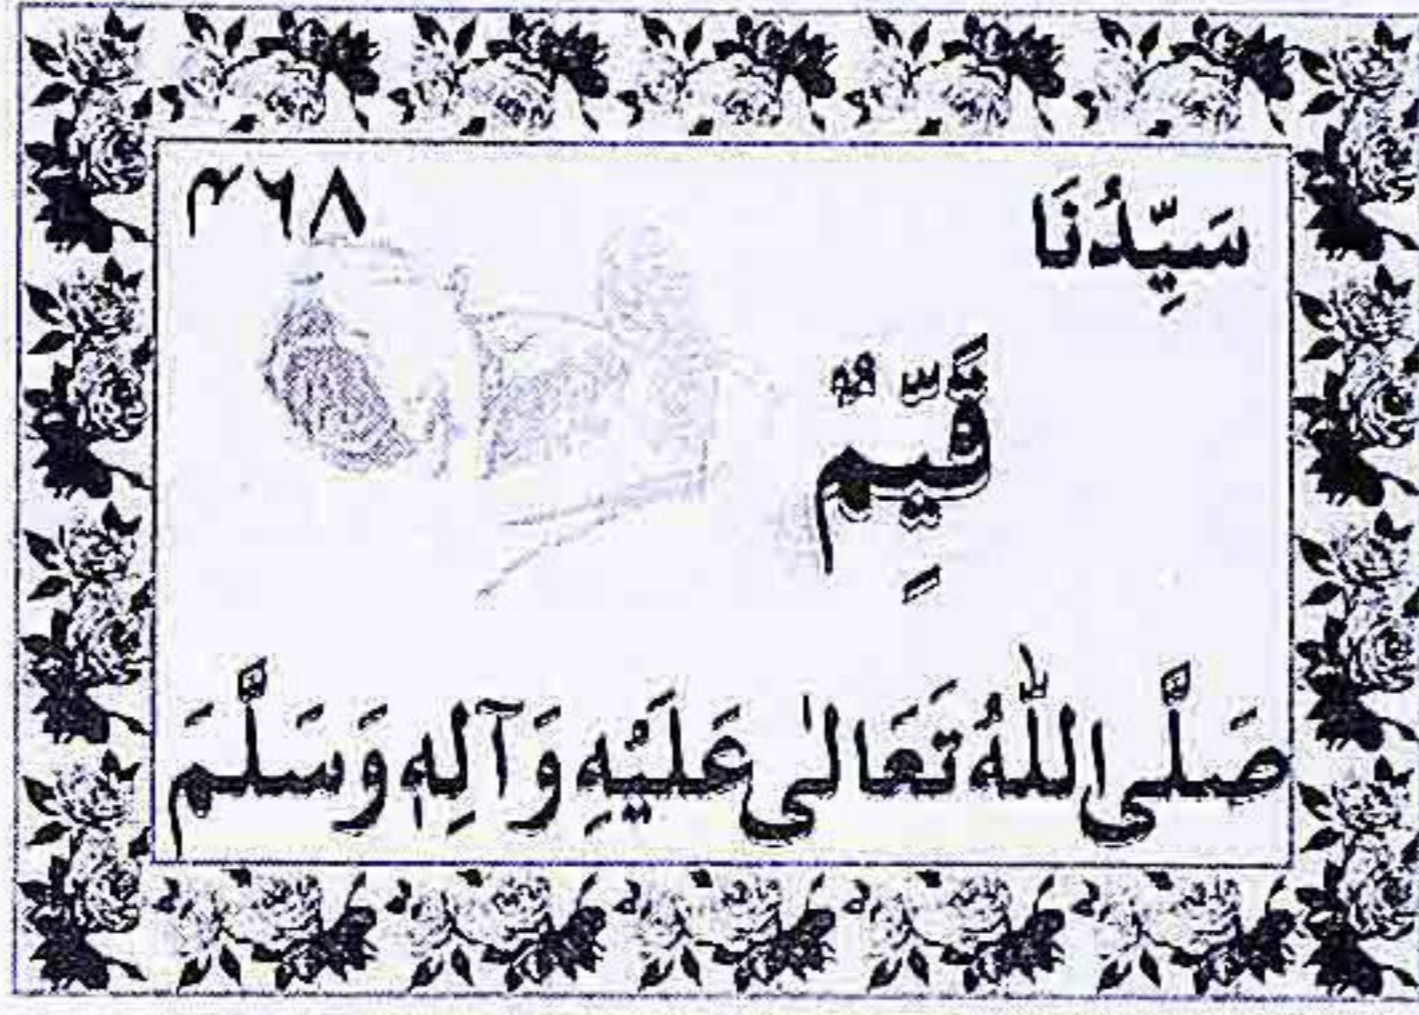 سَيِّدُنَا
۴۶۸
قَيِّمٌ
صَلَّى اللهُ تَعَالٰى عَلَيْهِ وَآلِهٖ وَسَلَّمَ